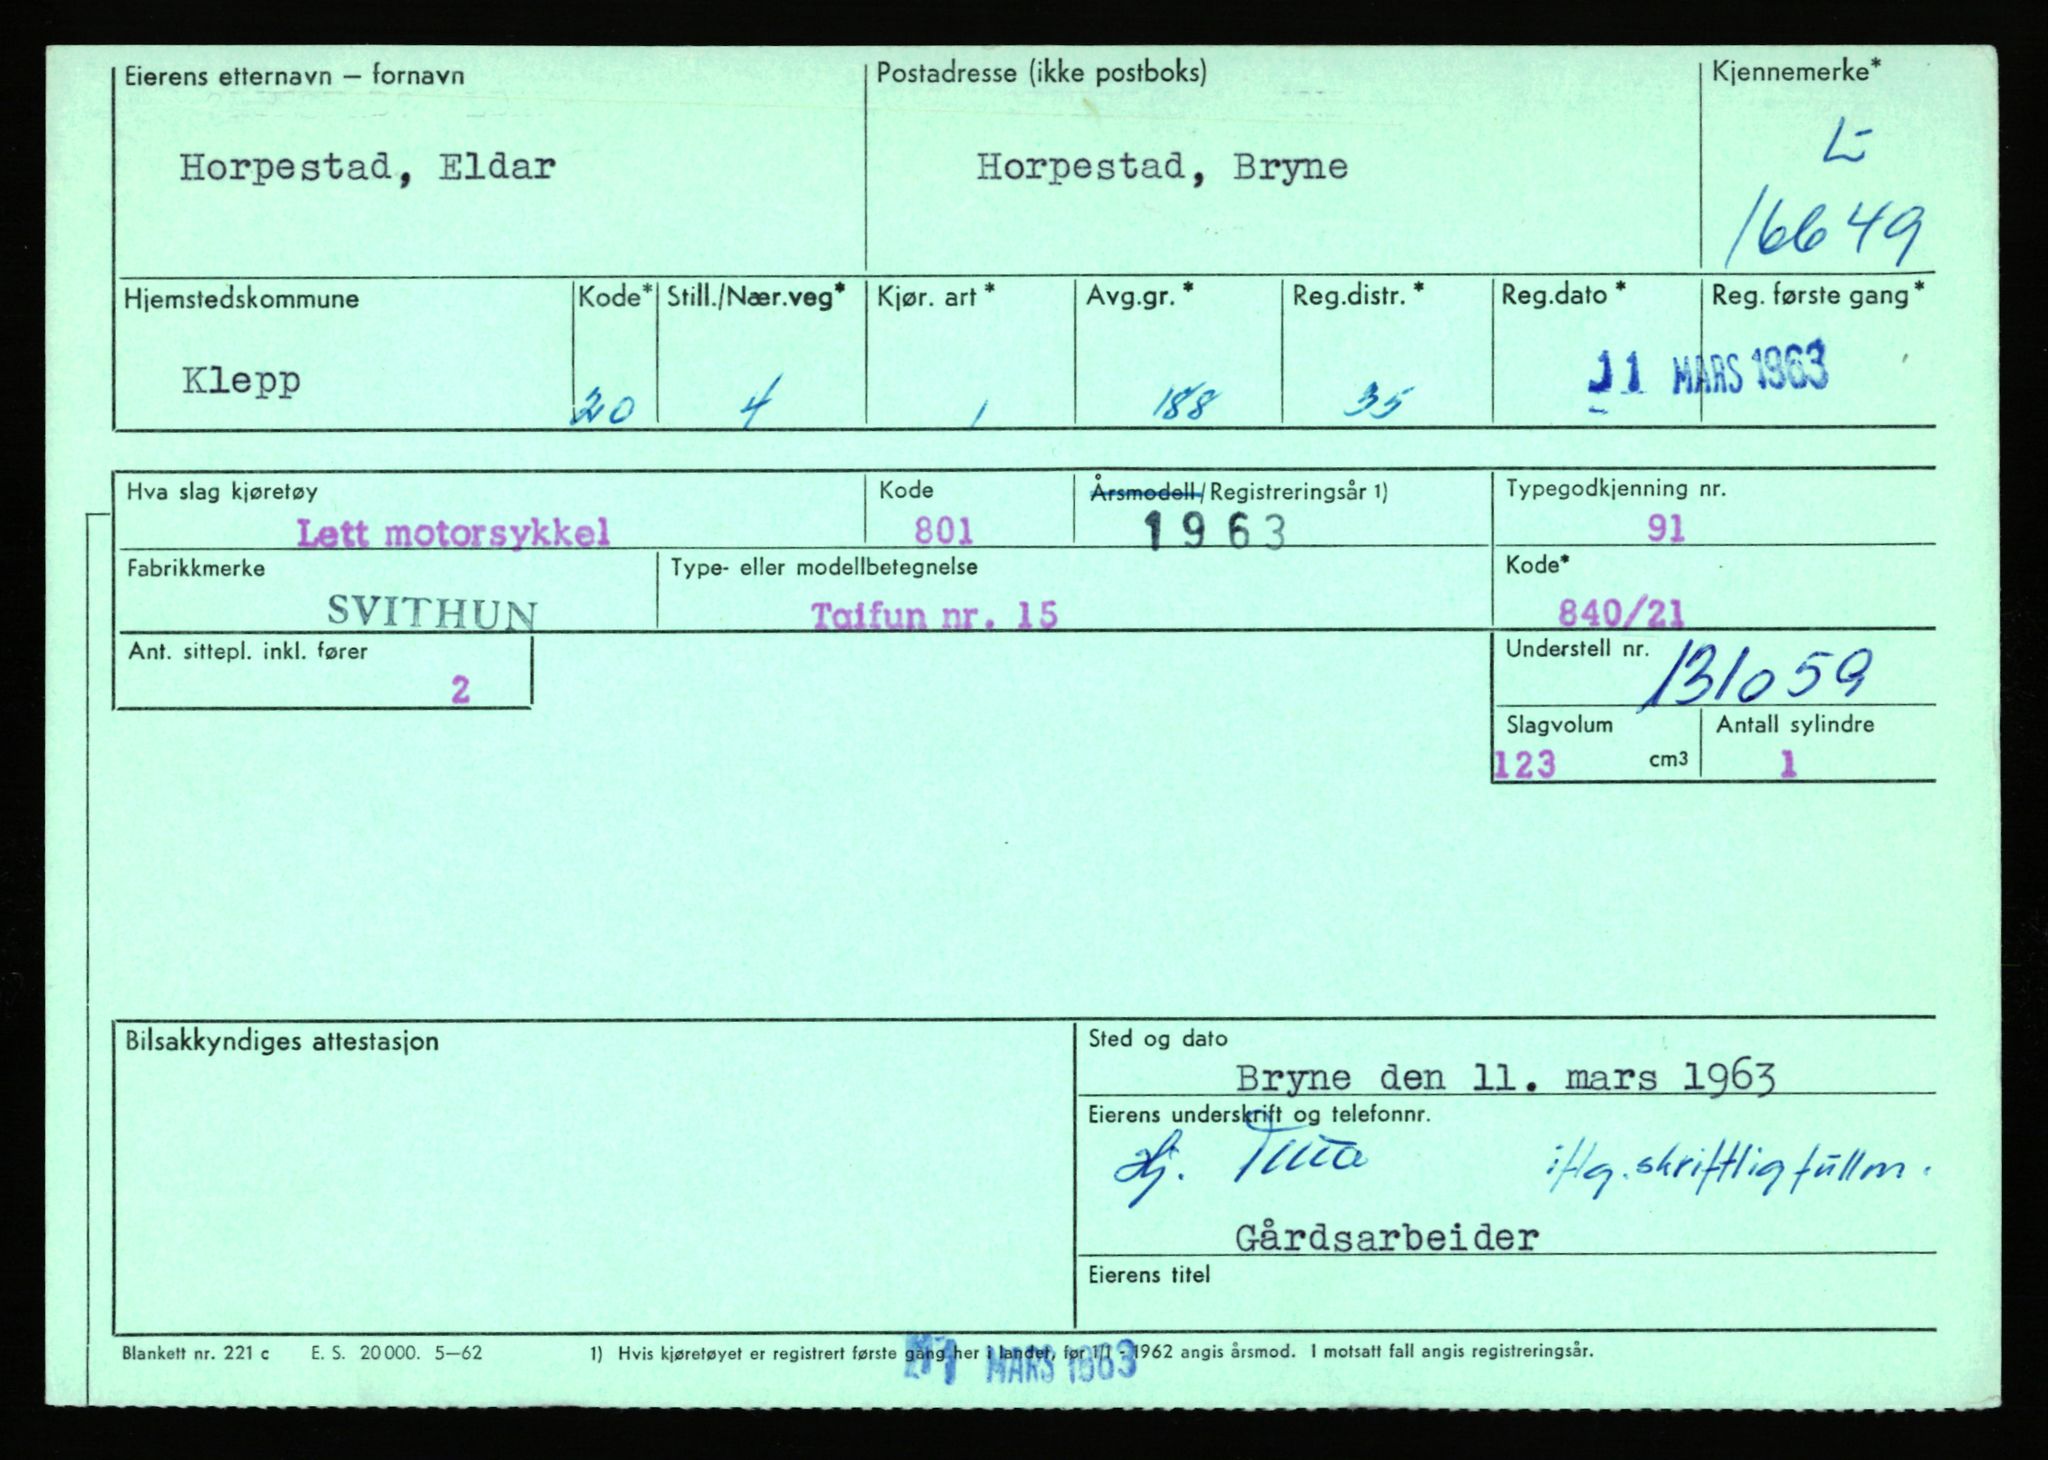 Eierens etternavn – fornavn Postadresse (ikke postboks) Kjennemerke*
Horpestad, Eldar Horpestad, Bryne L-
16649
Hjemstedskommune Kode* Still./Nær.veg* Kjør. art * Avg.gr. * Reg.distr. * Reg.dato * Reg. første gang*
Klepp 20 4 1 188 35 11 MARS 1963
Hva slag kjøretøy Kode Årsmodell/Registreringsår 1) Typegodkjenning nr.
Lett motorsykkel 801 1963 91
Fabrikkmerke Type- eller modellbetegnelse Kode*
SVITHUN Taifun nr. 15 840/21
Ant. sittepl. inkl. fører Understell nr. 131059
2
Slagvolum Antall sylindre
123 cm3 1
Bilsakkyndiges attestasjon Sted og dato
Bryne den 11. mars 1963
Eierens underskrift og telefonnr.
iflg. skriftlig fullm.
Gårdsarbeider
Eierens titel
Blankett nr. 221 c E. S. 20 000. 5–62 1) Hvis kjøretøyet er registrert første gang her i landet, før 1/1 - 1962 angis årsmod. I motsatt fall angis registreringsår.
MARS 1963